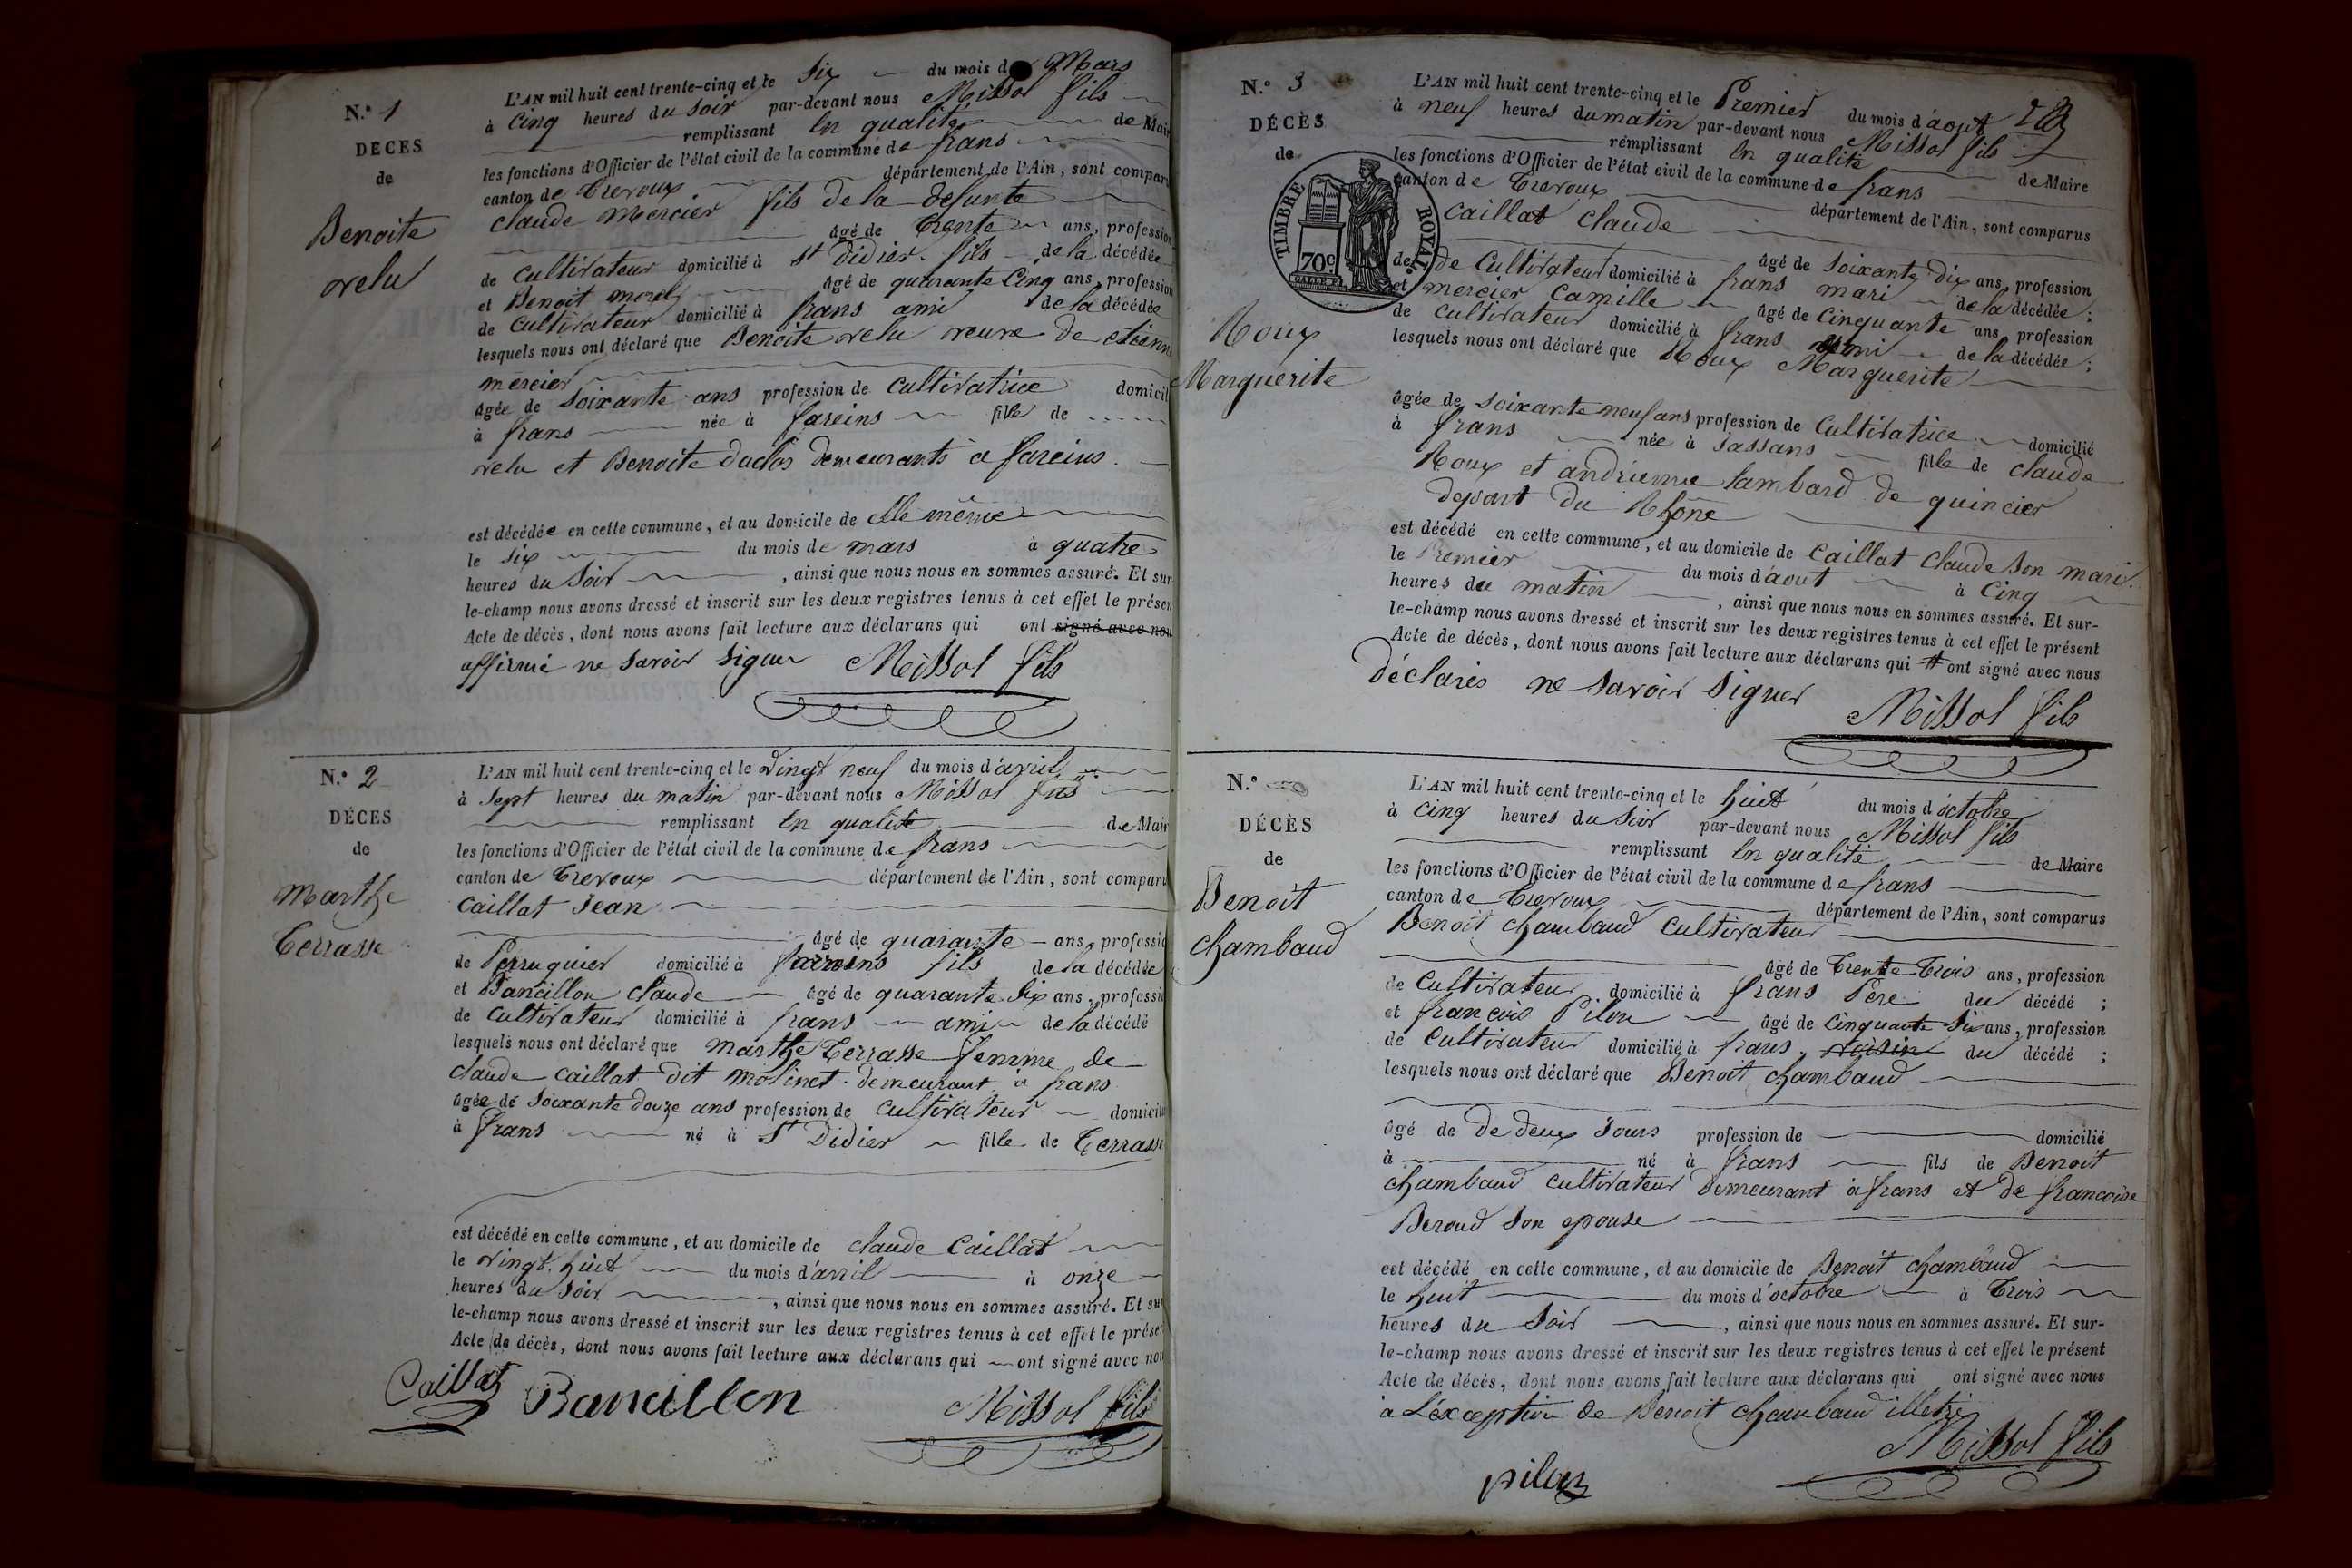 N.° 1
DÉCES
de
Benoite
velu
L'AN mil huit cent trente-cinq et le Six du mois d Mars
à Cinq heures du Soir par-devant nous Missol fils
remplissant En qualite de Mair
les fonctions d'Officier de l'état civil de la commune de frans
canton de Trevoux département de l'Ain, sont comparu
claude mercier fils de la defunte
âgé de trente ans, profession
de Cultivateur domicilié à St Didier. fils de la décédée
et Benoit morel âgé de quarante Cinq ans, profession
de Cultivateur domicilié à frans ami de la décédée
lesquels nous ont déclaré que Benoite velu veuve de etienne
mercier
âgée de Soixante ans profession de Cultivatrice domicil
à frans née à fareins fille de
velu et Benoite duclos demeurants à fareins.
est décédée en cette commune, et au domicile de Elle même
le Six du mois de mars à quatre
heures du Soir, ainsi que nous nous en sommes assuré. Et sur
le-champ nous avons dressé et inscrit sur les deux registres tenus à cet effet le présen
Acte de décès, dont nous avons fait lecture aux déclarans qui ont signé avec nou
affirmé ne Savoir Signer Missol fils
N.° 2
DÉCES
de
Marthe
Terrasse
L'AN mil huit cent trente-cinq et le vingt neuf du mois d'avril
à Sept heures du matin par-devant nous Missol fils
remplissant En qualité de Mair
les fonctions d'Officier de l'état civil de la commune de frans
canton de Trevoux département de l'Ain, sont comparu
Caillat Jean
âgé de quarante ans, professio
de Perruquier domicilié à fareins fils de la décédée
et Bancillon Claude âgé de quarante Six ans, professio
de Cultivateur domicilié à frans ami de la décédé
lesquels nous ont déclaré que Marthe Terrasse femme de
claude Caillat dit molinet demeurant à frans
âgée de Soixante douze ans profession de Cultivateur domicilié
à frans né à St Didier fille de Terrasse
est décédé en cette commune, et au domicile de claude Caillat
le vingt huit du mois d'avril à onze
heures du Soir, ainsi que nous nous en sommes assuré. Et sur
le-champ nous avons dressé et inscrit sur les deux registres tenus à cet effet le présen
Acte de décès, dont nous avons fait lecture aux déclarans qui ont signé avec nou
Caillat Bancillon Missol fils
N.° 3
DÉCÈS
de
TIMBRE ROYAL
70c.
Roux
Marguerite
L'AN mil huit cent trente-cinq et le Premier du mois d'aout
à neuf heures du matin par-devant nous Missol fils
remplissant En qualité de Maire
les fonctions d'Officier de l'état civil de la commune de frans
canton de Trevoux département de l'Ain, sont comparus
Caillat Claude
âgé de Soixante Dix ans, profession
de Cultivateur domicilié à frans mari de la décédée;
et mercier Camille âgé de Cinquante ans, profession
de Cultivateur domicilié à frans ami de la décédée;
lesquels nous ont déclaré que Roux Marguerite
âgée de Soixante neuf ans profession de Cultivatrice domicilié
à frans née à Jassans fille de claude
Roux et andrienne lambard de quincier
depart du Rhône
est décédé en cette commune, et au domicile de Caillat Claude Son mari.
le Premier du mois d'aout à Cinq
heures du matin, ainsi que nous nous en sommes assuré. Et sur-
le-champ nous avons dressé et inscrit sur les deux registres tenus à cet effet le présent
Acte de décès, dont nous avons fait lecture aux déclarans qui ont signé avec nous
Déclarés ne Savoir Signer
Missol fils
N.°
DÉCÈS
de
Benoit
Chambaud
L'AN mil huit cent trente-cinq et le huit du mois d'octobre
à Cinq heures du Soir par-devant nous Missol fils
remplissant En qualité de Maire
les fonctions d'Officier de l'état civil de la commune de frans
canton de Trevoux département de l'Ain, sont comparus
Benoit Chambaud Cultivateur
âgé de Trente Trois ans, profession
de Cultivateur domicilié à frans Pere du décédé;
et francois Pilon âgé de Cinquante Six ans, profession
de Cultivateur domicilié à frans, voisin du décédé;
lesquels nous ont déclaré que Benoit Chambaud
âgé de De deux Jours profession de domicilié
à né à frans fils de Benoit
Chambaud Cultivateur Demeurant à frans et de francoise
Beroud Son epouse
est décédé en cette commune, et au domicile de Benoit Chambaud
le huit du mois d'octobre à Trois
heures du Soir, ainsi que nous nous en sommes assuré. Et sur-
le-champ nous avons dressé et inscrit sur les deux registres tenus à cet effet le présent
Acte de décès, dont nous avons fait lecture aux déclarans qui ont signé avec nous
a L'exception de Benoit Chambaud illetré
Missol fils
pilon